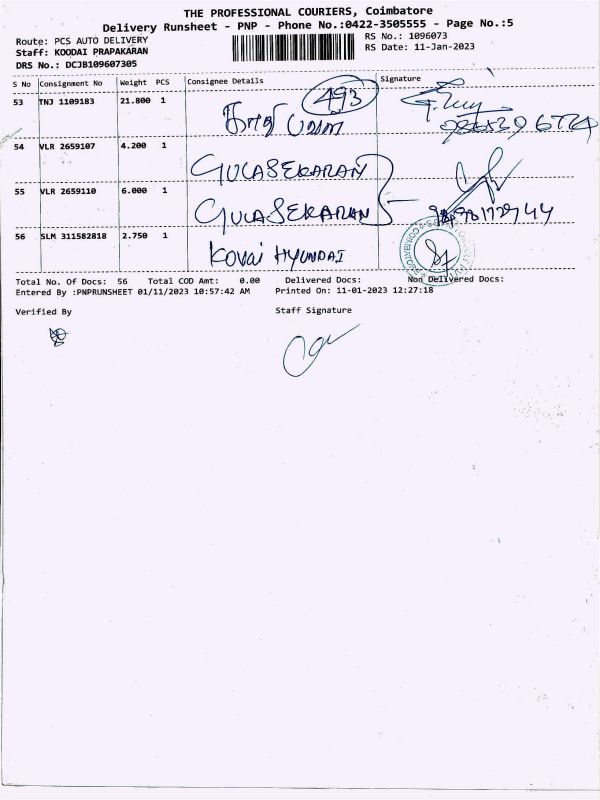 THE PROFESSIONAL COURIERS, Coimbatore
Delivery Runsheet - PNP - Phone No.:0422-3505555 - Page No.:5
Route: PCS AUTO DELIVERY
RS No.: 1096073
Staff: KOODAI PRAPAKARAN
RS Date: 11-Jan-2023
DRS No.: DCJB109607305
S No Consignment No Weight PCS Consignee Details Signature
53 TNJ 1109183 21.800 1 493
54 VLR 2659107 4.200 1 GULASEKARAN
55 VLR 2659110 6.000 1 GULASEKARAN
56 SLM 311582818 2.750 1 KOVAI HYUNDAI
Total No. Of Docs: 56 Total COD Amt: 0.00 Delivered Docs: Non Delivered Docs:
Entered By :PNPRUNSHEET 01/11/2023 10:57:42 AM Printed On: 11-01-2023 12:27:18
Verified By Staff Signature